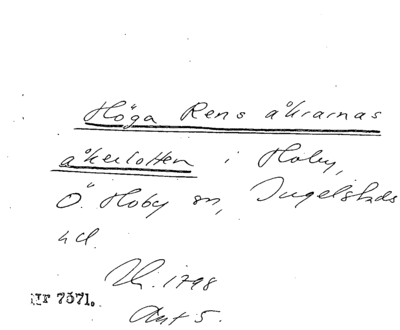 Höga Rens åkrarnas
åkerlotten i Hoby,
Ö. Hoby sn, Ingelstads
hd.
1798
Akt 5.
Nr 7571.